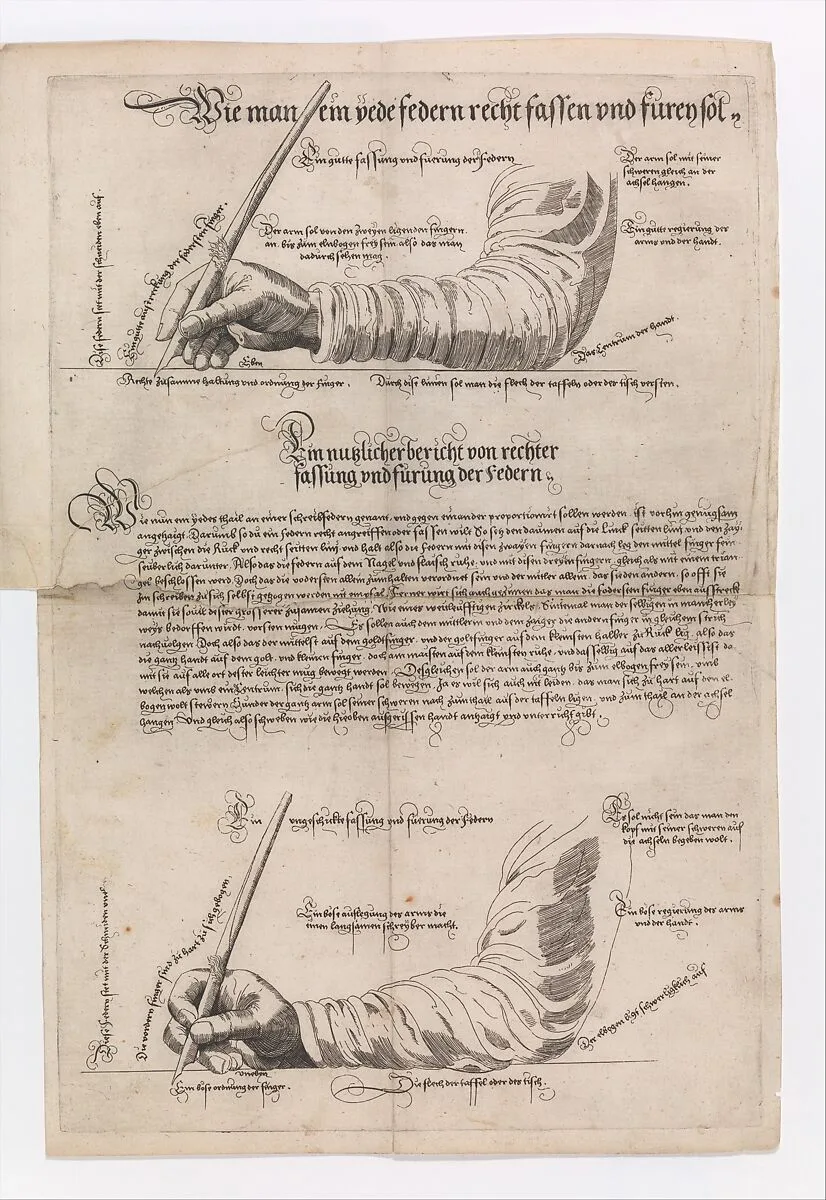 Wie man ein yede federn recht fassen vnd furen sol
Ein gutte fassung vnd fuerung der Federn
Der arm sol mit seiner
schweren gleich an der
achsel hangen.
Der arm sol von den zweyen ligenden fingern
an bis zum elnbogen frey sein also das man
dadurch sehen mag.
Ein gutte regierung der
arms vnd der handt.
Dise federn sett mit der schneiden eben auf.
Ein gutte ausstreckung der fodersten finger.
Das Centrum der handt.
Eben
Rechte zusamme haltung vnd ordnung der finger.
Durch dise linien sol man die flech der taffeln oder des tisch versten.
Ein nutzlicher bericht von rechter
fassung vnd furung der Federn
Wie nun ein yedes thail an einer schreibfedern genant, vnd gegen einander proportionirt sollen werden, ist vorhin genugsam
angezaigt. Darumb so du ein federn recht angreiffen oder fassen wilt So sich den daumen auf die Linck seitten linj vnd den zay-
ger zwischen die Ruck vnd recht seitten linj vnd halt also die federn mit disen zwayen fingern darnach leg den mittel finger fein
seuberlich darunter. Also das die federn auf dem Nagel vnd flaisch ruhe, vnd mit disen dreyen fingern, gleich als mit einem trian-
gel beschlossen werd. Doch das die vodersten allein zum halten verordnet sein vnd der mitler allein, das sie den andern, so offt sie
zu schreiben zu sich selbst gezogen werden mit empfal. Ferner wirt sich auch gezimen das man die fodersten finger eben ausstreck
damit sie souil dester grosserer zusamen ziehung, wie eines weitleuffigen zirckels, Sintemal man der selbigen in mancherley
weys bedorffen wirdt, vorsten mugen. Es sollen auch dem mittlern vnd dem zaiger die andern finger in gleichem strich
nachuolgen Doch also das der mittelst auf dem goltfinger, vnd der goltfinger auf dem kleinsten halber zu Ruck lig, also das
die gantz handt auf dem golt, vnd kleinen finger, doch am maisten auf dem kleinsten ruhe, vnd dasselbig auf das aller leissest da-
mit sie auf alle ort dester leichter mug bewegt werden. Desgleichen sol der arm auch gantz bis zum elbogen frey sein, vmb
welchen als vmb ein Zentrum, sich die gantz handt sol bewegen. Ja es wil sich auch nit leiden, das man sich zu hart auf den el-
bogen wolt stewern Sunder der gantz arm sol seiner schweren nach zum thail auf der taffeln ligen, vnd zum thail an der achsel
hangen. Vnd gleich also schweben wie die hieoben ausgerissen handt anzaigt vnd vnterricht gibt.
Ein vngeschickte fassung vnd fuerung der Federn
Es sol nicht sein das man den
kopf mit seiner schweren auf
die achseln begeben wolt.
Ein böse auslegung des arms die
einen langsamen schreyber macht.
Ein böse regierung des arms
vnd der handt.
Diese Federn sett mit der Schneiden vneben
Die vordern finger sind zu hart zu sich gebogen.
Der elbogen ligt schwerligklich auf
vneben
Ein böse ordnung der finger.
Die flech der taffel oder des tisch.